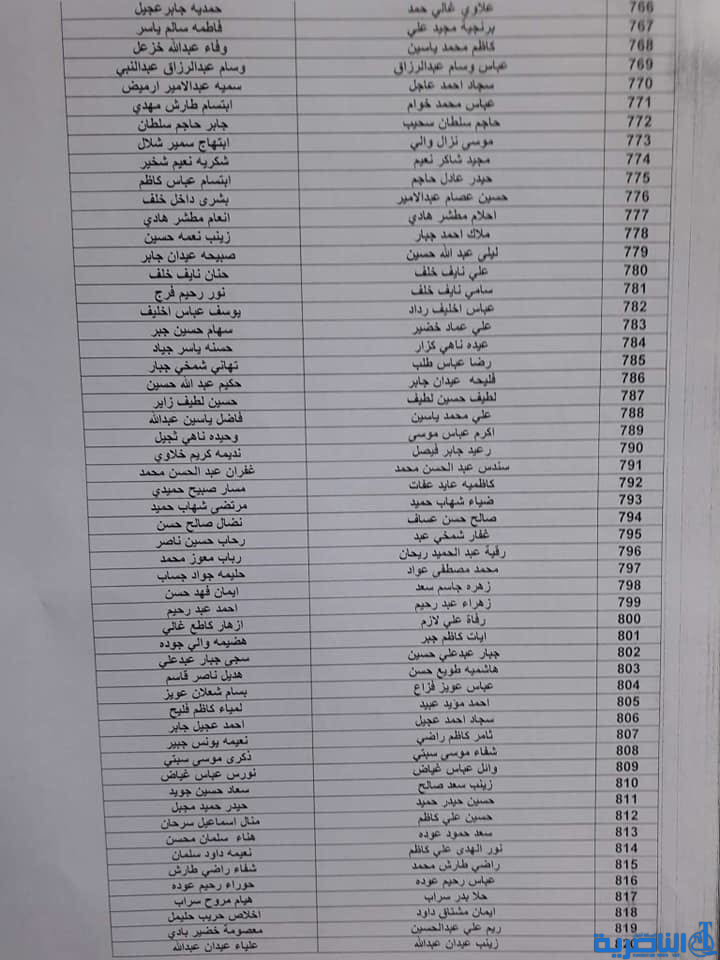 766 علاوي غالي حمد حمديه جابر عجيل
767 برنجية مجيد علي فاطمه سالم ياسر
768 كاظم محمد ياسين وفاء عبدالله خزعل
769 عباس وسام عبدالرزاق وسام عبدالرزاق عبدالنبي
770 سجاد احمد عاجل سميه عبدالامير ارميض
771 عباس محمد خوام ابتسام طارش مهدي
772 حاجم سلطان سحيب جابر حاجم سلطان
773 موسى نزال والي ابتهاج سمير شلال
774 مجيد شاكر نعيم شكريه نعيم شخير
775 حيدر عادل حاجم ابتسام عباس كاظم
776 حسين عصام عبدالامير بشرى داخل خلف
777 احلام مطشر هادي انعام مطشر هادي
778 ملاك احمد جبار زينب نعمه حسين
779 ليلى عبد الله حسين صبيحه عيدان جابر
780 علي نايف خلف حنان نايف خلف
781 سامي نايف خلف نور رحيم فرج
782 عباس اخليف رداد يوسف عباس اخليف
783 علي عماد خضير سهام حسين جبر
784 عيده ناهي كزار حسنه ياسر جياد
785 رضا عباس طلب تهاني شمخي جبار
786 فليحه عيدان جابر حكيم عبد الله حسين
787 لطيف حسين لطيف حسين لطيف زاير
788 علي محمد ياسين فاضل ياسين عبدالله
789 اكرم عباس موسى وحيده ناهي ثجيل
790 رعيد جابر فيصل نديمه كريم خلاوي
791 سندس عبد الحسن محمد غفران عبد الحسن محمد
792 كاظميه عايد عفات مسار صبيح حميدي
793 ضياء شهاب حميد مرتضى شهاب حميد
794 صالح حسن عساف نضال صالح حسن
795 غفار شمخي عبد رحاب حسين ناصر
796 رقية عبد الحميد ريحان رباب معوز محمد
797 محمد مصطفى عواد حليمه جواد جساب
798 زهره جاسم سعد ايمان فهد حسن
799 زهراء عبد رحيم احمد عبد رحيم
800 رفاة علي لازم ازهار كاطع غالي
801 ايات كاظم جبر هضيمه والي جوده
802 جبار عبدعلي حسين سجى جبار عبدعلي
803 هاشميه طويع حسن هديل ناصر قاسم
804 عباس عويز فزاع بسام شعلان عويز
805 احمد مؤيد عبيد لمياء كاظم فليح
806 سجاد احمد عجيل احمد عجيل جابر
807 ثامر كاظم راضي نعيمه يونس جبير
808 شفاء موسى سبتي ذكرى موسى سبتي
809 وائل عباس غياض نورس عباس غياض
810 زينب سعد صالح سعاد حسين جويد
811 حسين حيدر حميد حيدر حميد مجبل
812 حسين علي كاظم منال اسماعيل سرحان
813 سعد حمود عوده هناء سلمان محسن
814 نور الهدى علي كاظم نعيمه داود سلمان
815 راضي طارش محمد شفاء راضي طارش
816 عباس رحيم عوده حوراء رحيم عوده
817 حلا بدر سراب هيام مروح سراب
818 ايمان مشتاق داود اخلاص حريب حليمل
819 ريم علي عبدالحسين معصومة خضير بادي
820 زينب عيدان عبدالله علياء عيدان عبدالله
الناصرية